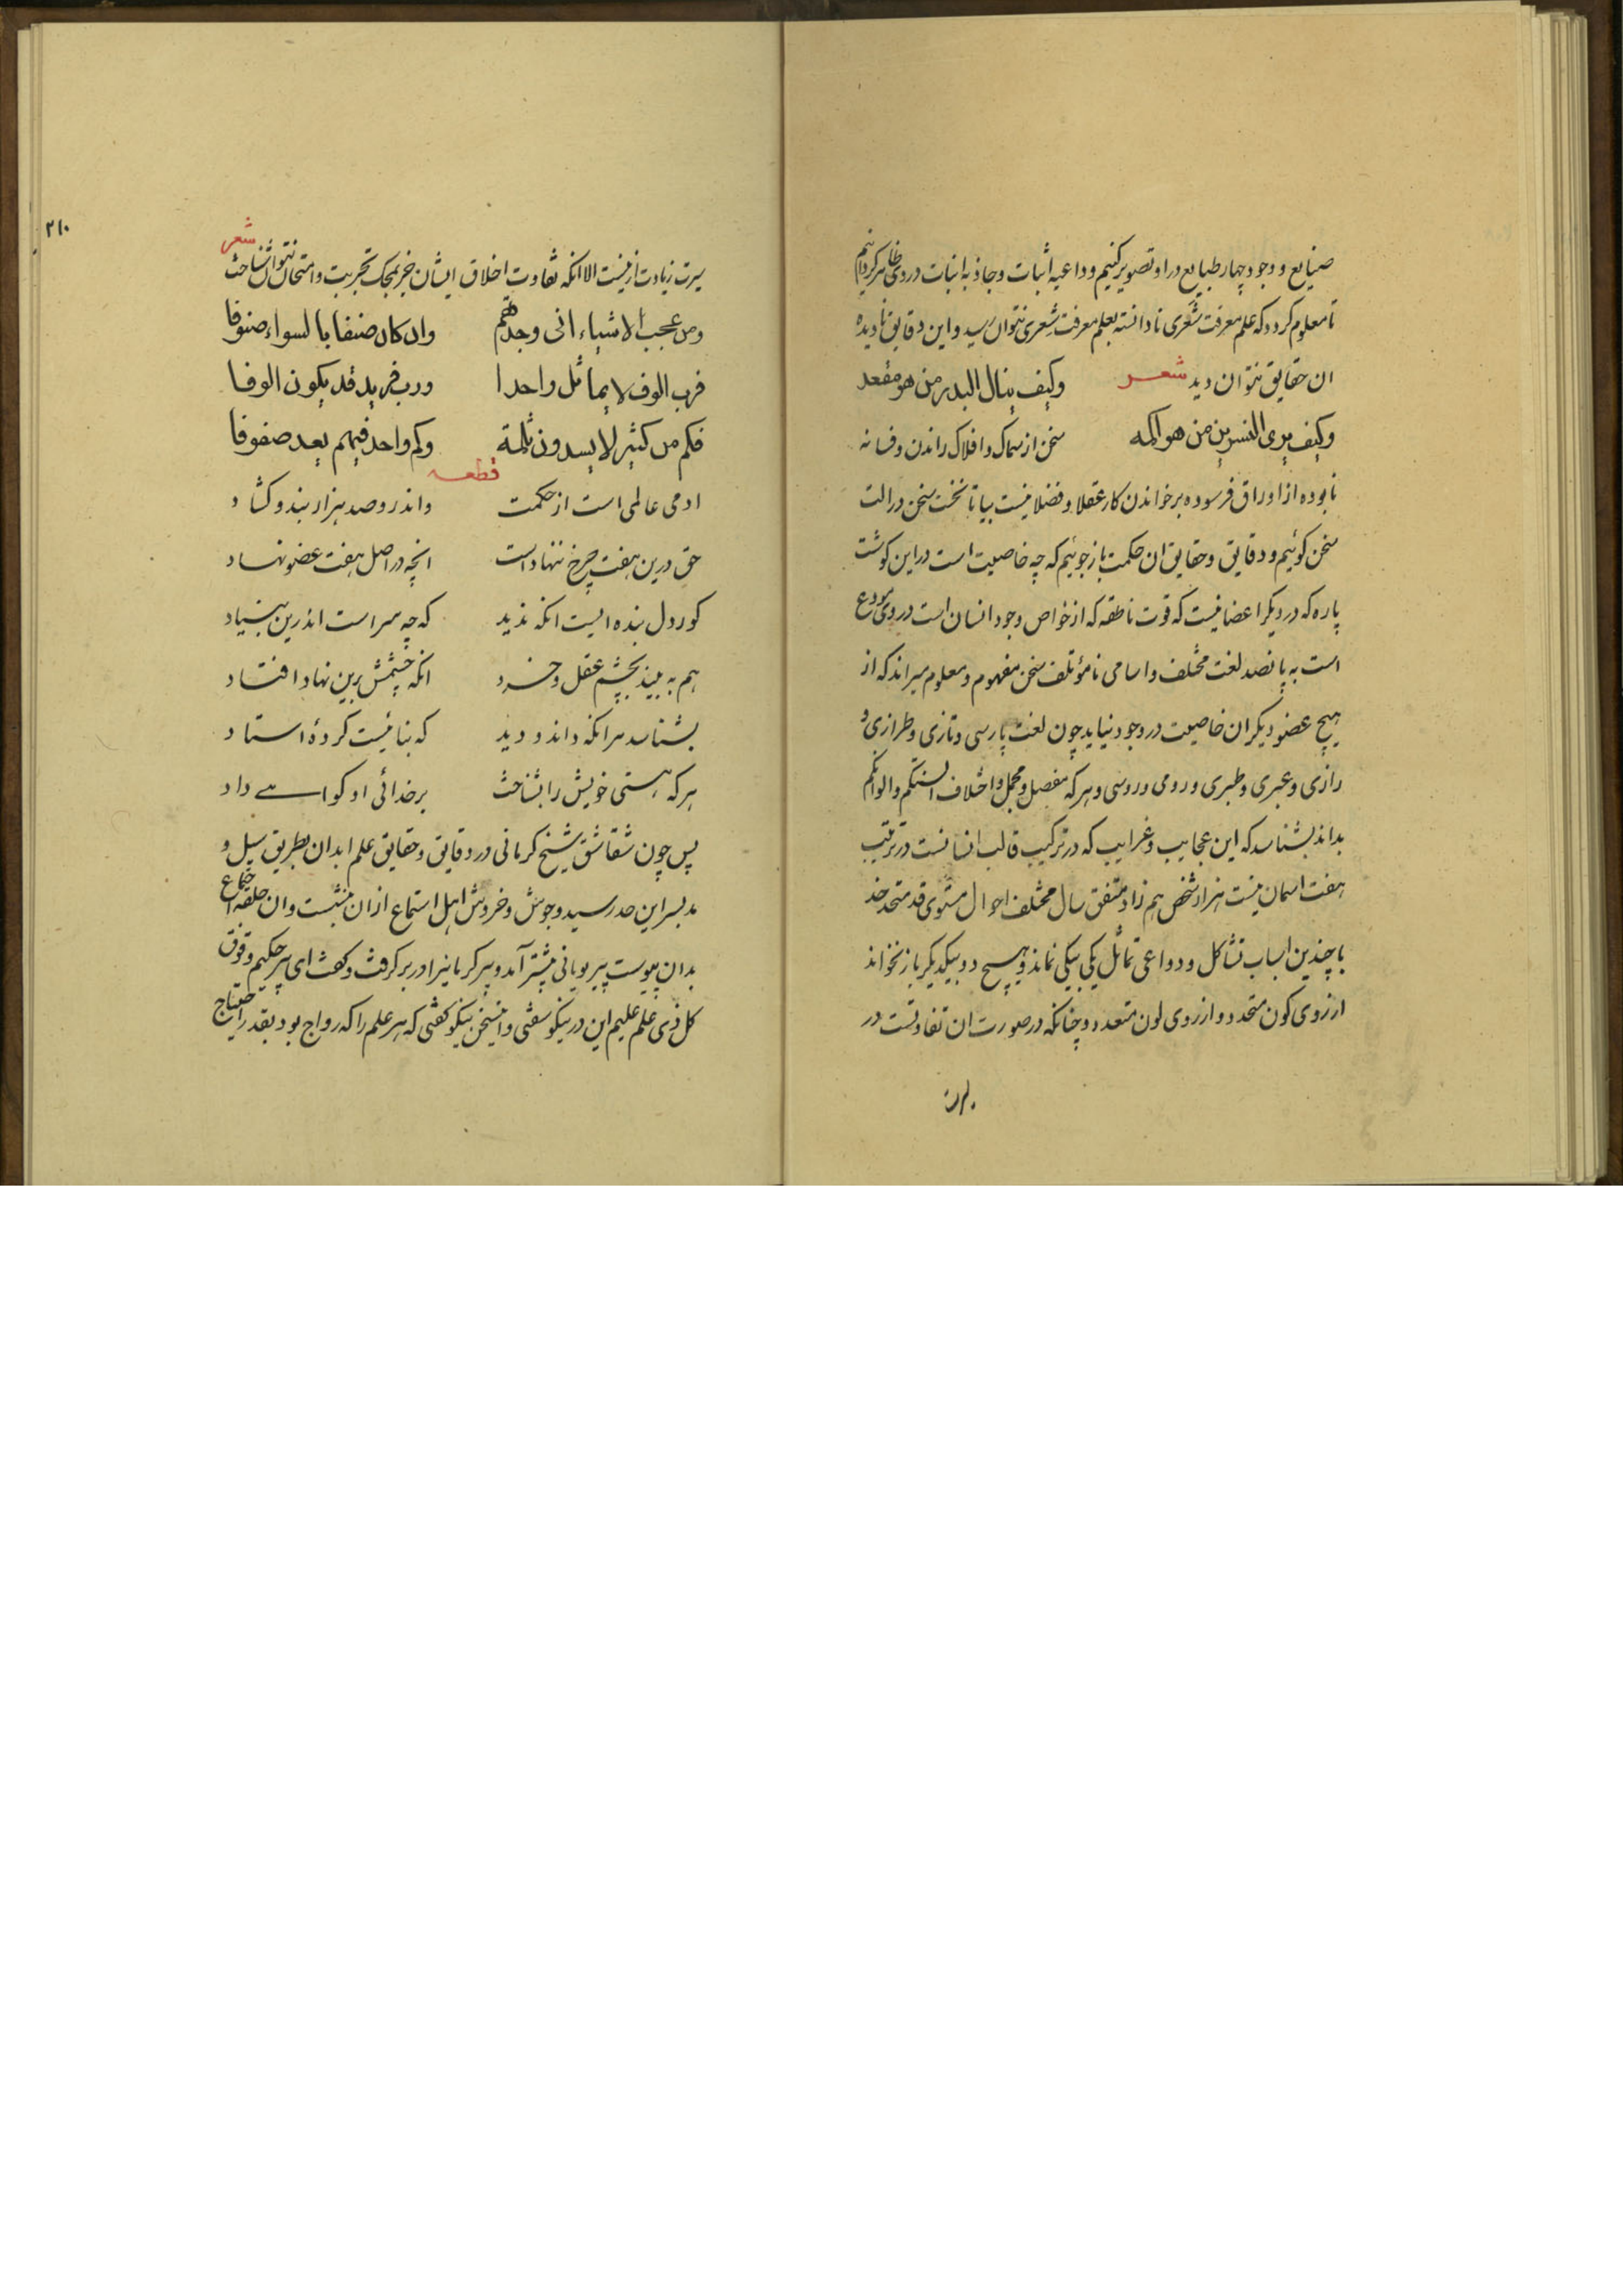 صنایع و وجود چهار طبایع در او تصویر کنیم و داعیه اثبات و جاذبه انبات در وی ظاهر کردانیم
تا معلوم کردد که علم معرفت شعری نادانسته بعلم معرفت شعری نتوان رسید و این دقایق نادیده
ان حقایق نتوان دید شعر وکیف ینال البدر من هو مقعد
وکیف یری النسرین من هو اکمه سخن از سماک و افلاک راندن و فسانه
نابوده از اوراق فرسوده برخواندن کار عقلا و فضلا نیست بیا تا نخست سخن در الت
سخن کوئیم و دقایق و حقایق ان حکمت باز جوئیم که چه خاصیت است در این کوشت
پاره که در دیکر اعضا نیست که قوت ناطقه که از خواص وجود انسان است در وی مودع
است به پانصد لغت مختلف و اسامی نامؤتلف سخن مفهوم و معلوم میراند که از
هیچ عضو دیکر ان خاصیت در وجود نیاید چون لغت پارسی و تازی و طرازی و
رازی و عبری و طبری و رومی و روسی و هر که مفصل و مجمل و اختلاف السنتکم والوانکم
بداند بشناسد که این عجایب و غرایب که در ترکیب قالب انسانست در ترتیب
هفت اسمان نیست هزار شخص هم زاد متفق سال مختلف احوال مستوی قد متحد خد
با چندین اسباب تشاکل و دواعی تماثل یکی بیکی نماند و هیچ دو بیکدیکر باز نخواند
از روی کون متحد و از روی لون متعدد و چنانکه در صورت ان تفاوتست در
سیرت
۲۱۰
سیرت زیادت از نیست الا انکه تفاوت اخلاق ایشان جز بمحک تجربت و امتحان نتوان شناخت شعر
ومن عجب الاشیاء انی وجدتهم وان کان صنفا بالسواء صنوفا
فرب الوف لا یماثل واحدا ورب فرید قد یکون الوفا
فکم من کثیر لا یسدون ثلمة وکم واحد فیهم یعد صفوفا
قطعه
ادمی عالمی است از حکمت واندر و صد هزار بند و کشاد
حق درین هفت چرخ ننهاد است انچه در اصل هفت عضو نهاد
کور دل بنده ایست انکه ندید که چه سر است اندرین بنیاد
هم به بیند بچشم عقل و خرد انکه چشمش برین نهاد افتاد
بشناسد هر انکه داند و دید که بنا نیست کردهٔ استاد
هر که هستی خویش را بشناخت بر خدائی او کواهی داد
پس چون شقاشق شیخ کرمانی در دقایق و حقایق علم ابدان بطریق سیل و
مد بسر این حد رسید و جوش و خروش اهل استماع از ان بنشست و ان حلقه اجتماع
بدان پیوست پیر یونانی پیشتر آمد و پیر کرمانیرا در بر کرفت و کفت ای پیر حکیم و فوق
کل ذی علم علیم این در نیکو سفتی و این سخن نیکو کفتی که هر علم را که رواج بود بقدر احتیاج